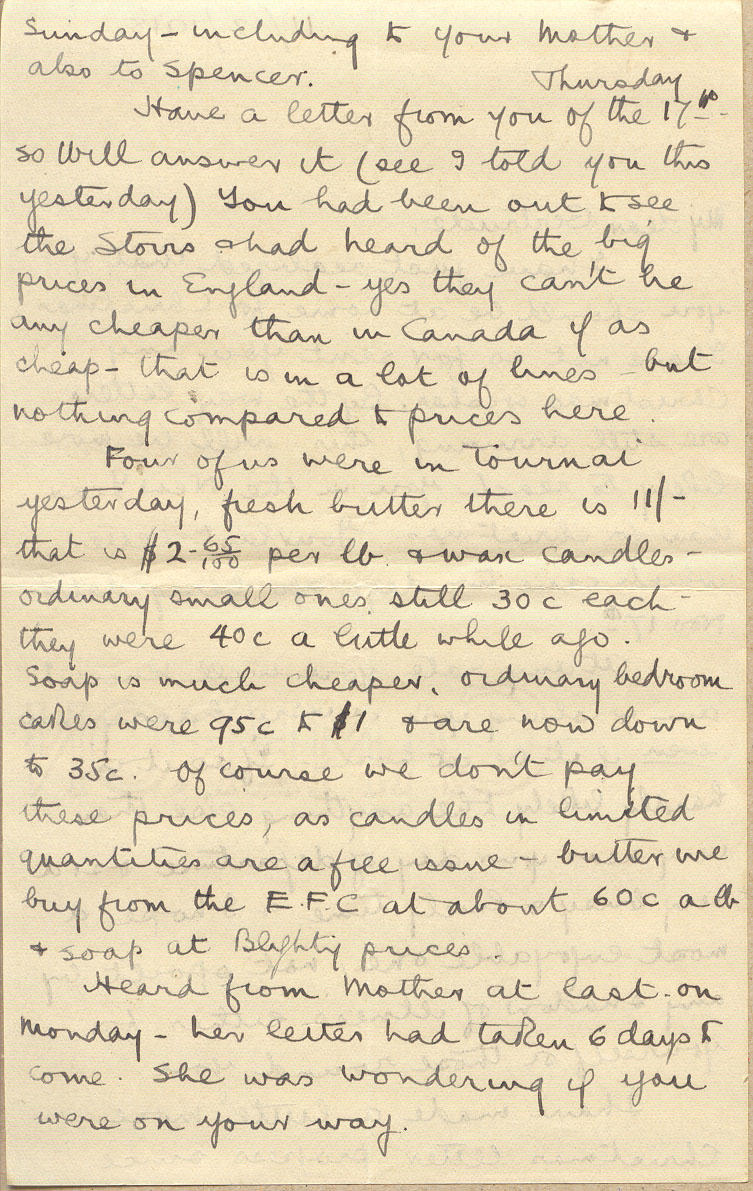 Sunday - including to your Mother &
also to Spencer. Thursday
Have a letter from you of the 17th -
so will answer it (see I told you this
yesterday) You had been out to see
the Storrs & had heard of the big
prices in England - yes they can't be
any cheaper than in Canada if as
cheap - that is in a lot of lines - but
nothing compared to prices here.
Four of us were in Tournai
yesterday, fresh butter there is 11/-
that is $2-65/100 per lb. & wax candles -
ordinary small ones still 30c each -
they were 40c a little while ago.
Soap is much cheaper, ordinary bedroom
cakes were 95c to $1 & are now down
to 35c. Of course we don't pay
these prices, as candles in limited
quantities are a free issue - butter we
buy from the E.F.C at about 60c a lb
& soap at Blighty prices.
Heard from Mother at last - on
Monday - her letter had taken 6 days to
come. She was wondering if you
were on your way.